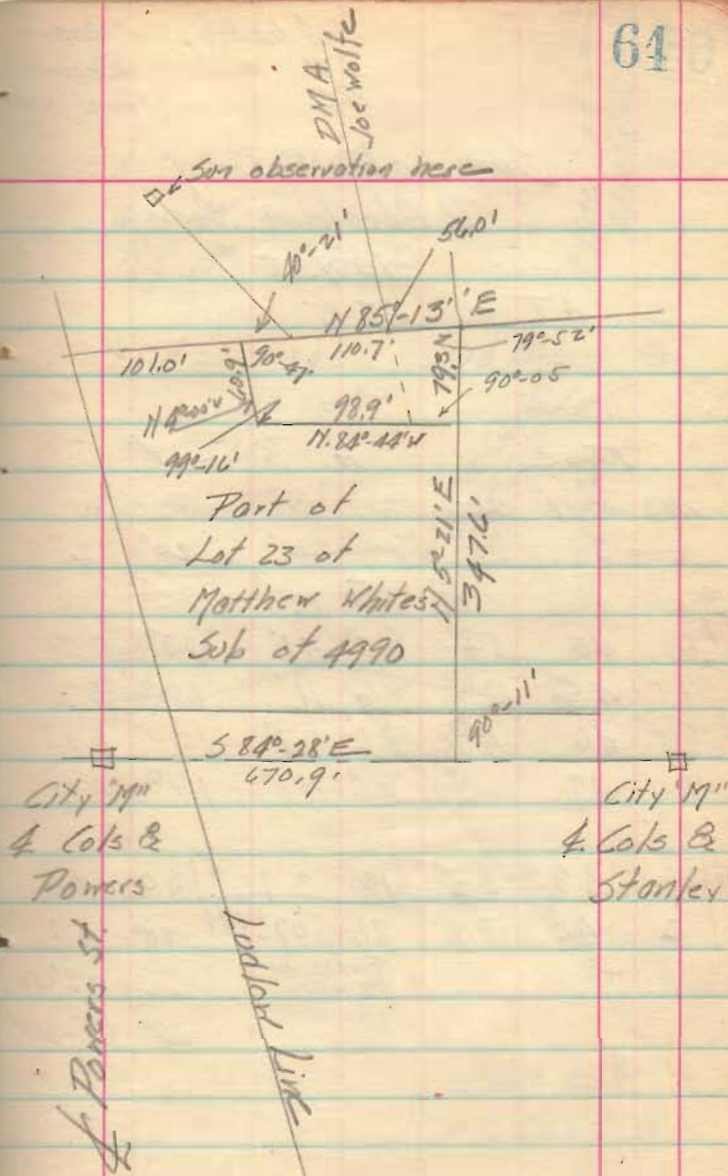 61
DMA
Joe Wolfe
Sun observation here
40°-21'
56.0'
N 85°-13' E
101.0'
90°-47'
110.7'
79°-52'
60.9'
79.3
90°-05
N 4°-00' W
98.9'
N. 84°-44' W
99°-16'
Part of
Lot 23 of
Matthew Whites
Sub of 4990
N 5°-21' E
347.6'
90°-11'
S 84°-28' E
670.9'
City "M"
℄ Cols &
Powers
City "M"
℄ Cols &
Stanley
℄ Powers St.
Ludlow Line